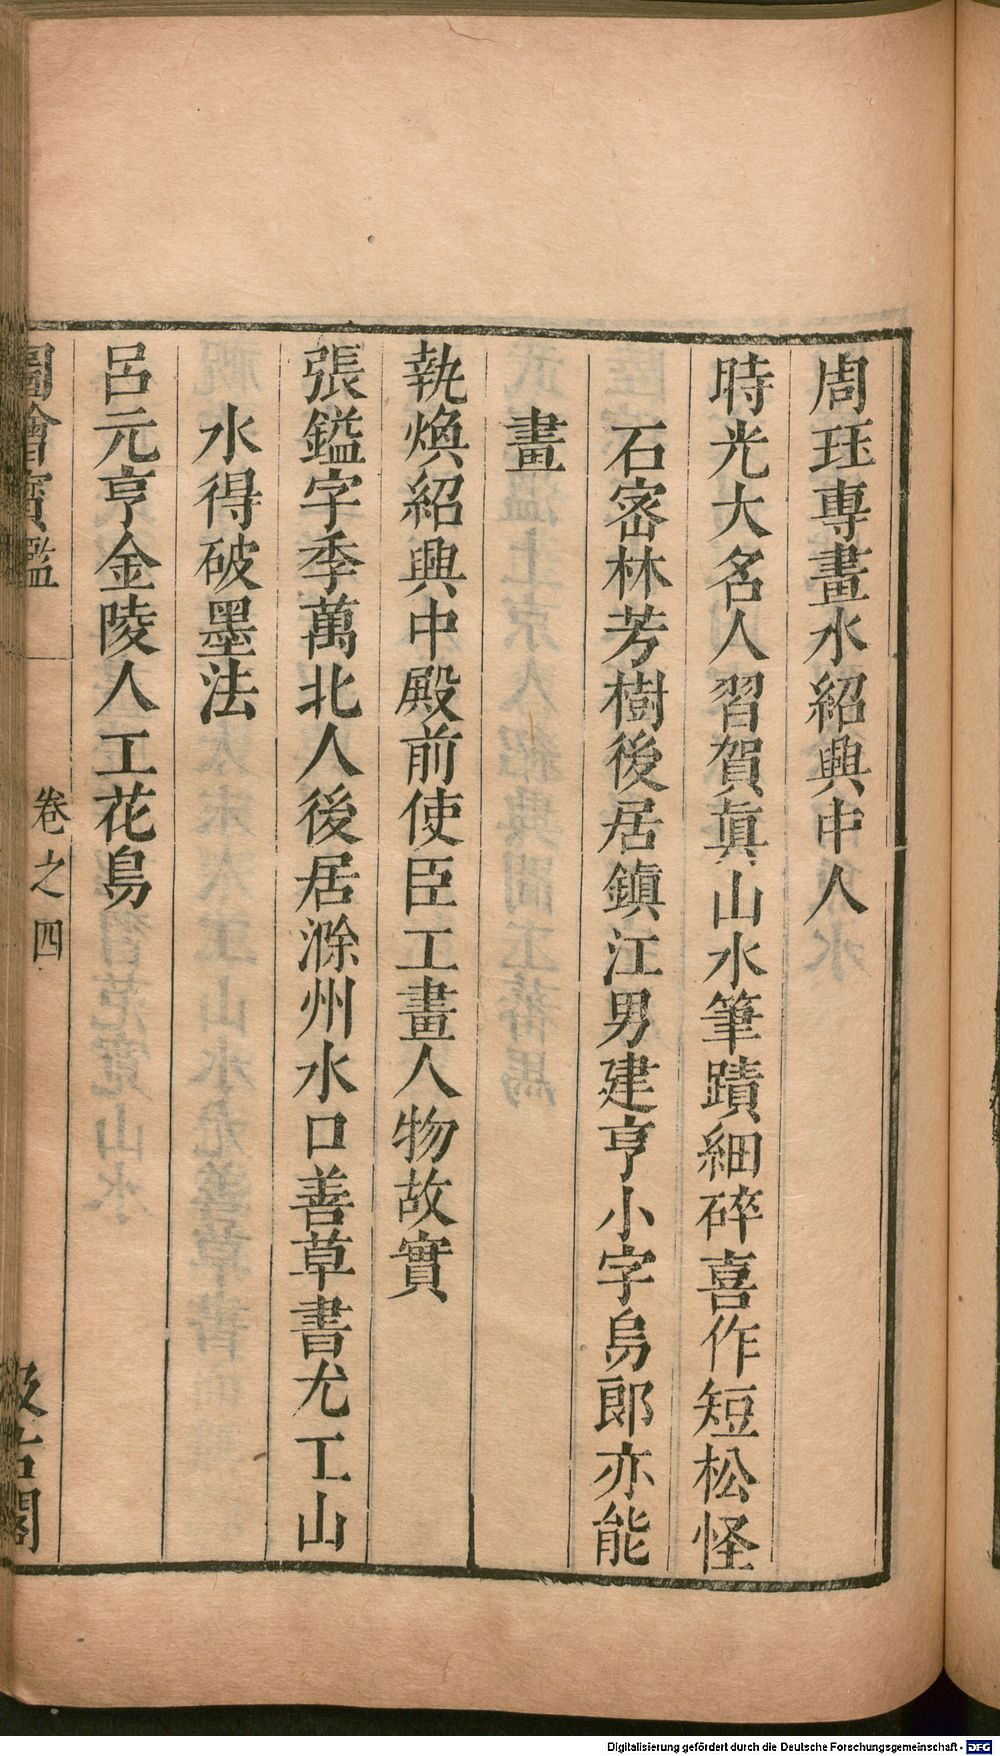 周珏專畫水紹興中人
時光大名人習賀眞山水筆蹟細碎喜作短松怪
石宻林芳樹後居鎭江男建亨小字烏郎亦能
畫
執煥紹興中殿前使臣工畫人物故實
張鎰字季萬北人後居滁州水口善草書尤工山
水得破墨法
呂元亨金陵人工花鳥
圖繪寶鑑 卷之四 汲古閣
Digitalisierung gefördert durch die Deutsche Forschungsgemeinschaft - DFG